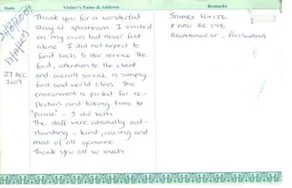 Date Visitor's Name & Address Remarks
Thank you for a wonderful
stay @ . I visited
on my own but never felt
alone. I did not expect to
find such 5 star service. The
food, attention to the client
and overall service is simply
first and world class. The
environment is perfect for re-
flection and taking time to
"pause" - I did both.
The staff were absolutely out-
standing - kind, caring and
most of all genuine
Thank you all so much
27 DEC
2009
JAMES WHITE
P/BAG
, BOTSWANA